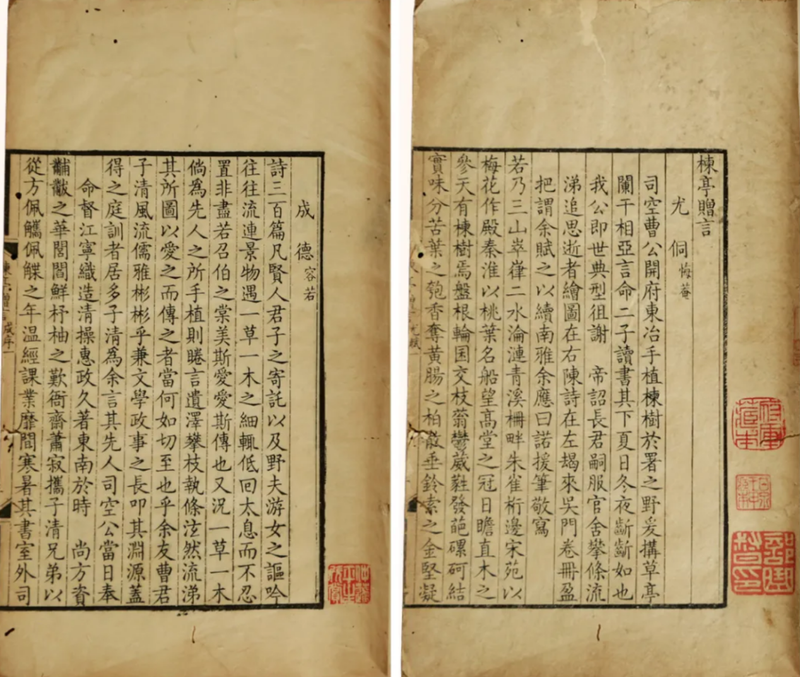 楝亭贈言
尤侗 悔菴
司空曹公開府東冶手植楝樹於署之野爰搆草亭
闌干相亞言命二子讀書其下夏日冬夜斷斷如也
我公即世典型徂謝　帝詔長君嗣服官舍攀條流
涕追思逝者繪圖在右陳詩在左朅來吳門卷冊盈
把謂余賦之以續南雅余應曰諾援筆敬寫
若乃三山崒嵂二水淪漣青溪柵畔朱雀桁邊宋苑以
梅花作殿秦淮以桃葉名船望高堂之冠日瞻直木之
參天有楝樹焉盤根輪囷交枝蓊鬱葳蕤發葩磥砢結
實味分苦葉之匏香奪黃腸之柏散垂鈴素之金堅凝
成德 容若
詩三百篇凡賢人君子之寄託以及野夫游女之謳吟
往往流連景物遇一草一木之細輒低回太息而不忍
置非盡若召伯之棠美斯愛愛斯傳也又況一草一木
倘為先人之所手植則睠言遺澤攀枝執條泫然流涕
其所圖以愛之而傳之者當何如切至也乎余友曹君
子清風流儒雅彬彬乎兼文學政事之長叩其淵源蓋
得之庭訓者居多子清為余言其先人司空公當日奉
命督江寧織造清操惠政久著東南於時　尚方資
黼黻之華閭閻鮮杼柚之歎衙齋蕭寂攜子清兄弟以
從方佩觿佩韘之年溫經課業靡間寒暑其書室外司